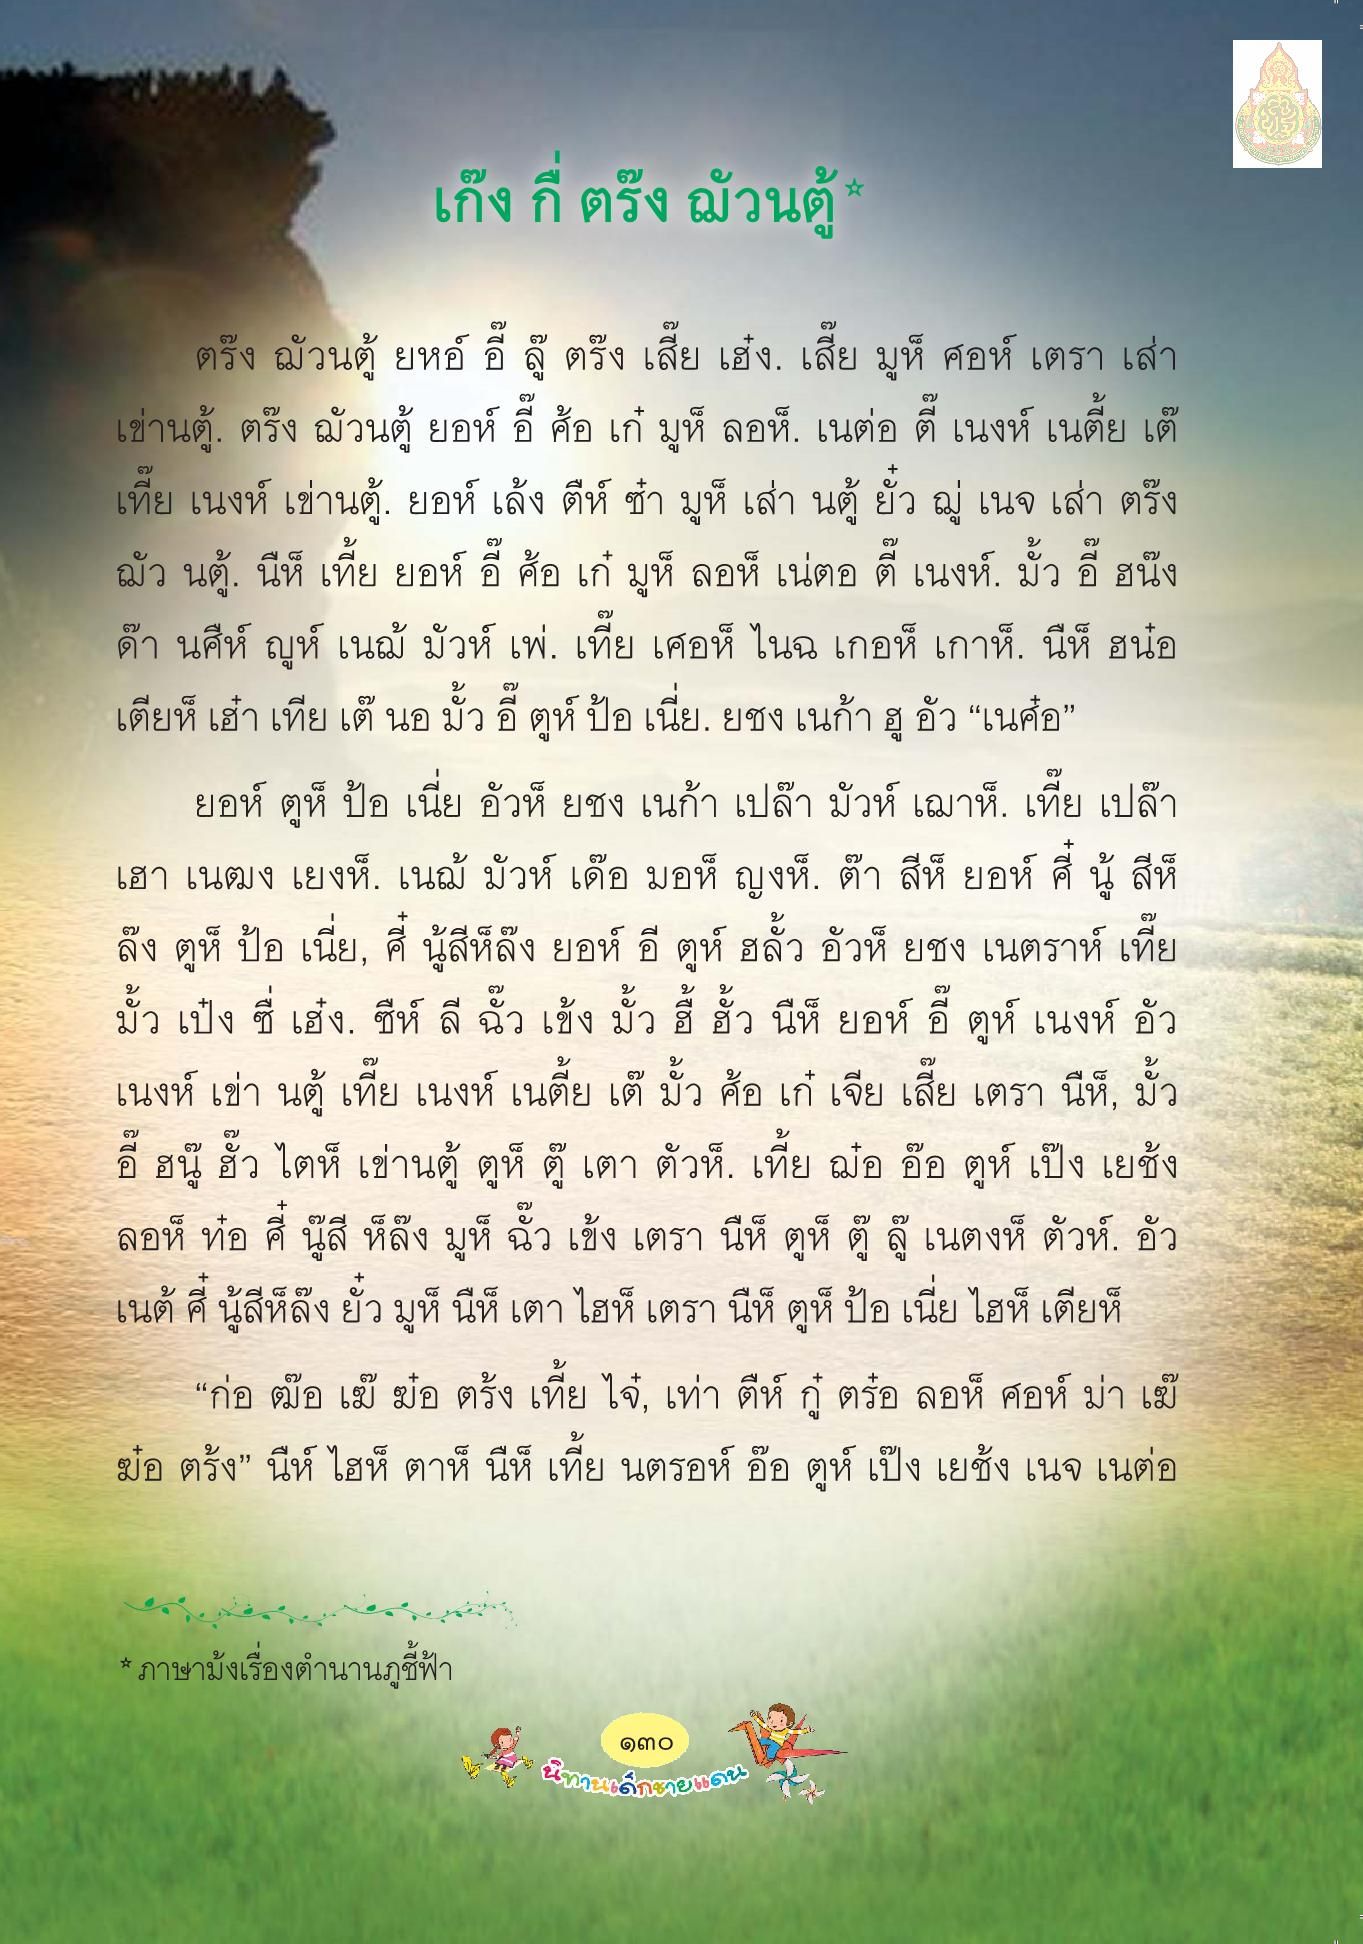 เก๊ง กื่ ตร๊ง ฌัวนตู้*
ตร๊ง ฌัวนตู้ ยหอ์ อี๊ ลู๊ ตร๊ง เสี๊ย เฮ๋ง. เสี๊ย มูห็ ศอห์ เตรา เส่า
เข่านตู้. ตร๊ง ฌัวนตู้ ยอห์ อี๊ ศ้อ เก๋ มูห็ ลอห็. เนต่อ ตี๊ เนงห์ เนตี้ย เต๊
เที๊ย เนงห์ เข่านตู้. ยอห์ เล้ง ตีห์ ซ๋า มูห็ เส่า นตู้ ยั๋ว ฌู่ เนจ เส่า ตร๊ง
ฌัว นตู้. นีห็ เที้ย ยอห์ อี๊ ศ้อ เก๋ มูห็ ลอห็ เน่ตอ ตี๊ เนงห์. มั้ว อี๊ ฮน๊ง
ด๊า นศืห์ ญูห์ เนฌ้ มัวห์ เพ่. เที๊ย เศอห็ ไนฉ เกอห็ เกาห็. นืห็ ฮน๋อ
เตียห็ เฮ๋า เทีย เต๊ นอ มั้ว อี๊ ตูห์ ป้อ เนี่ย. ยชง เนก้า ฮู อัว “เนศ๋อ”
ยอห์ ตูห็ ป้อ เนี่ย อัวห็ ยชง เนก้า เปล๊า มัวห์ เฌาห็. เที๊ย เปล๊า
เฮา เนฒง เยงห็. เนฌ้ มัวห์ เด๊อ มอห็ ญงห็. ต๊า สีห็ ยอห์ ศี๋ นู้ สีห็
ล๊ง ตูห็ ป้อ เนี่ย, ศี๋ นู้สีห็ล๊ง ยอห์ อี ตูห์ ฮลั้ว อัวห็ ยชง เนตราห์ เที๊ย
มั้ว เป๋ง ซื่ เฮ๋ง. ซืห์ ลี ฉั๊ว เข้ง มั้ว ฮื้ ฮั้ว นืห็ ยอห์ อี๊ ตูห์ เนงห์ อัว
เนงห์ เข่า นตู้ เที๊ย เนงห์ เนตี้ย เต๊ มั้ว ศ้อ เก๋ เจีย เสี๊ย เตรา นืห็, มั้ว
อี๊ ฮนู๊ ฮั๊ว ไตห็ เข่านตู้ ตูห็ ตู๊ เตา ตัวห็. เที้ย ฌ๋อ อ๊อ ตูห์ เป๊ง เยช้ง
ลอห็ ท๋อ ศี๋ นู๊สี ห็ล๊ง มูห็ ฉั๊ว เข้ง เตรา นืห็ ตูห็ ตู๊ ลู๊ เนตงห็ ตัวห์. อัว
เนต้ ศี๋ นู้สีห็ล๊ง ยั๋ว มูห็ นืห็ เตา ไฮห็ เตรา นืห็ ตูห็ ป้อ เนี่ย ไฮห็ เตียห็
“ก่อ ฒ๊อ เฆ๊ ฆ๋อ ตร้ง เที้ย ไจ๋, เท่า ตืห์ กู๋ ตร๋อ ลอห็ ศอห์ ม่า เฆ๊
ฆ๋อ ตร้ง” นืห์ ไฮห็ ตาห็ นืห็ เที้ย นตรอห์ อ๊อ ตูห์ เป๊ง เยช้ง เนจ เนต่อ
* ภาษาม้งเรื่องตำนานภูชี้ฟ้า
๑๓๐
นิทานเด็กชายแดน